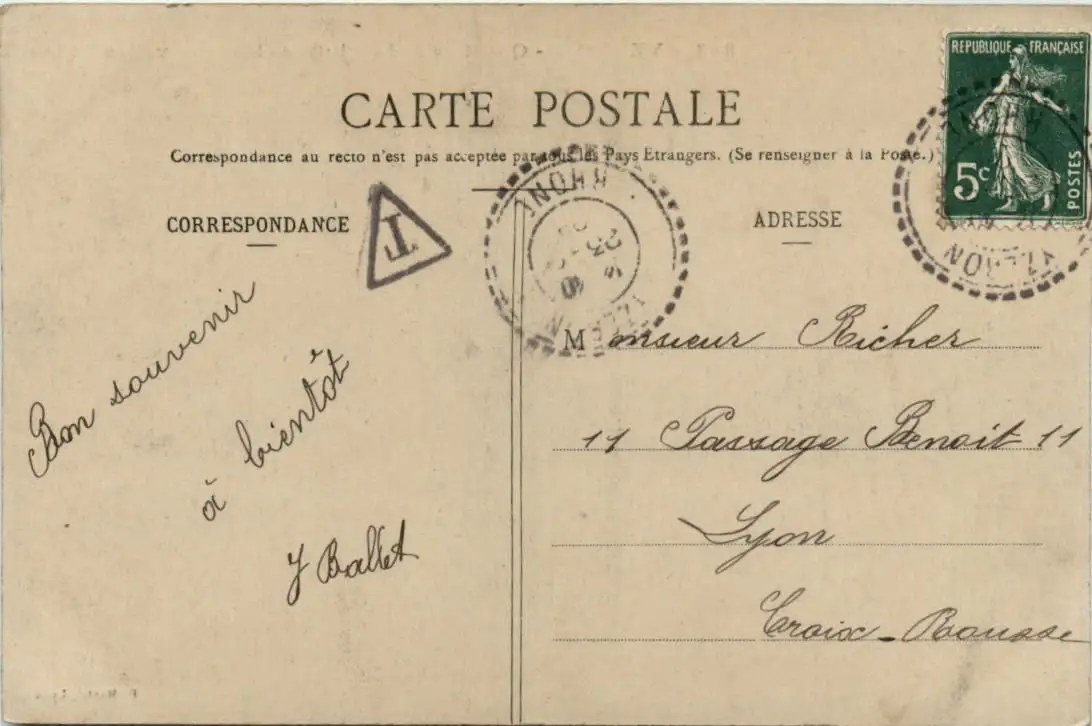 CARTE POSTALE
Correspondance au recto n'est pas acceptée par tous les Pays Etrangers. (Se renseigner à la Poste.)
CORRESPONDANCE
ADRESSE
T
RHONE
REPUBLIQUE FRANÇAISE
5c
POSTES
Bon souvenir
à bientôt
J Ballet
Monsieur Richer
11 Passage Benoit 11
Lyon
Croix-Rousse